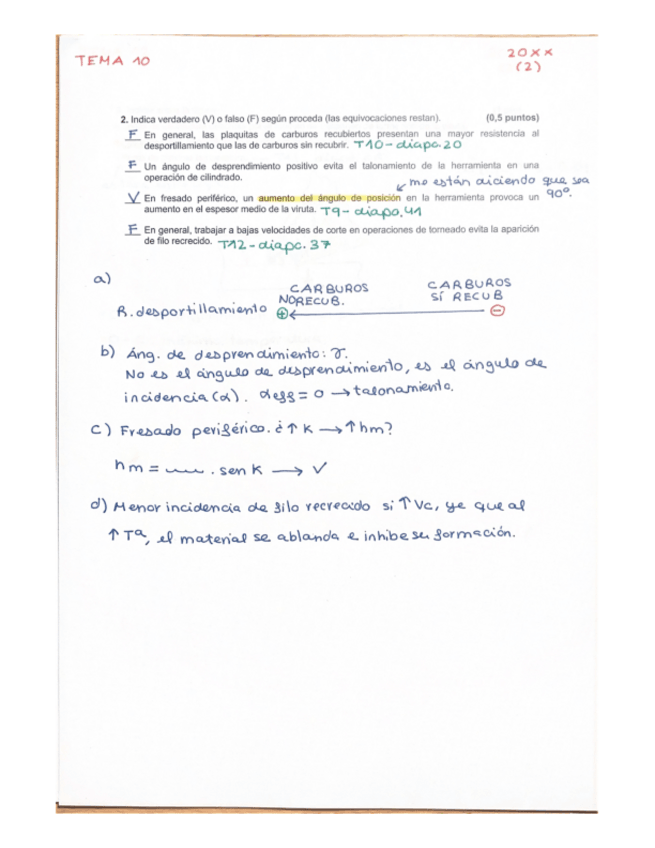 TEMA 10
20XX
(2)
2. Indica verdadero (V) o falso (F) según proceda (las equivocaciones restan). (0,5 puntos)
F En general, las plaquitas de carburos recubiertos presentan una mayor resistencia al
desportillamiento que las de carburos sin recubrir. T10-diapo.20
F Un ángulo de desprendimiento positivo evita el talonamiento de la herramienta en una
operación de cilindrado.
me están diciendo que sea
V En fresado periférico, un aumento del ángulo de posición en la herramienta provoca un 90º.
aumento en el espesor medio de la viruta. T9-diapo.41
F En general, trabajar a bajas velocidades de corte en operaciones de torneado evita la aparición
de filo recrecido. T12-diapo.37
a)
CARBUROS CARBUROS
NO RECUB. SÍ RECUB
R. desportillamiento ⊕ ← ⊖
b) Áng. de desprendimiento: γ.
No es el ángulo de desprendimiento, es el ángulo de
incidencia (α). αeff = 0 → talonamiento.
c) Fresado periférico. ¿↑ K → ↑ hm?
hm = . sen K → V
d) Menor incidencia de filo recrecido si ↑ Vc, ya que al
↑ Tª, el material se ablanda e inhibe su formación.